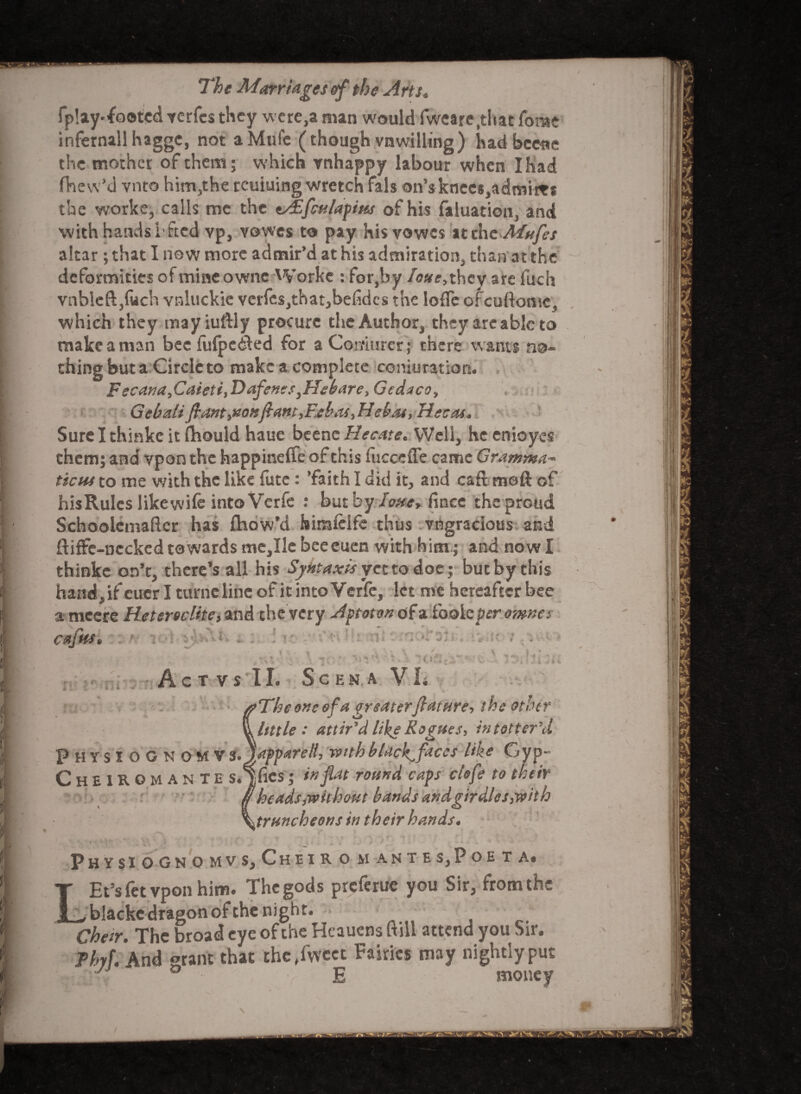 The Marriages of the Arts.
ſplay-footed verſes they were, a man would ſweare, that ſome
infernall hagge, not a Muſe (though vnwilling) had beene
the mother of them; which vnhappy labour when I had
ſhew'd vnto him, the reuiuing wretch fals on's knees, admires
the worke, calls me the Æſculapius of his ſaluation, and
with hands lifted vp, vowes to pay his vowes at the Muſes
altar; that I now more admir'd at his admiration, than at the
deformities of mine owne Worke: for, by Ioue, they are ſuch
vnbleſt, ſuch vnluckie verſes, that, beſides the loſſe of cuſtome,
which they may iuſtly procure the Author, they are able to
make a man bee ſuſpected for a Coniurer; there wants no-
thing but a Circle to make a complete coniuration.
Fecana, Caieti, Dafenes, Hebare, Gedaco,
Gebali ſtant, non ſtant, Febas, Hebas, Hecas.
Sure I thinke it ſhould haue beene Hecate. Well, he enioyes
them; and vpon the happineſſe of this ſucceſſe came Gramma-
ticus to me with the like ſute: 'faith I did it, and caſt moſt of
his Rules likewiſe into Verſe: but by Ioue, ſince the proud
Schoolemaſter has ſhow'd himſelfe thus vngracious and
ſtiffe-necked towards me, Ile bee euen with him; and now I
thinke on't, there's all his Syntaxis yet to doe; but by this
hand, if euer I turne line of it into Verſe, let me hereafter bee
a meere Heteroclite, and the very Aptoton of a foole per omnes
caſus.
ACTVS II. SCENA VI.
The one of a greater ſtature, the other
little: attir'd like Rogues, in totter'd
PHYSIOGNOMVS. apparell, with black faces like Gyp-
CHEIROMANTES. ſies; in flat round caps cloſe to their
heads, without bands and girdles, with
truncheons in their hands.
PHYSIOGNOMVS, CHEIROMANTES, POETA.
LEt's ſet vpon him. The gods preſerue you Sir, from the
blacke dragon of the night.
Cheir. The broad eye of the Heauens ſtill attend you Sir.
Phyſ. And grant that the ſweet Fairies may nightly put
E money